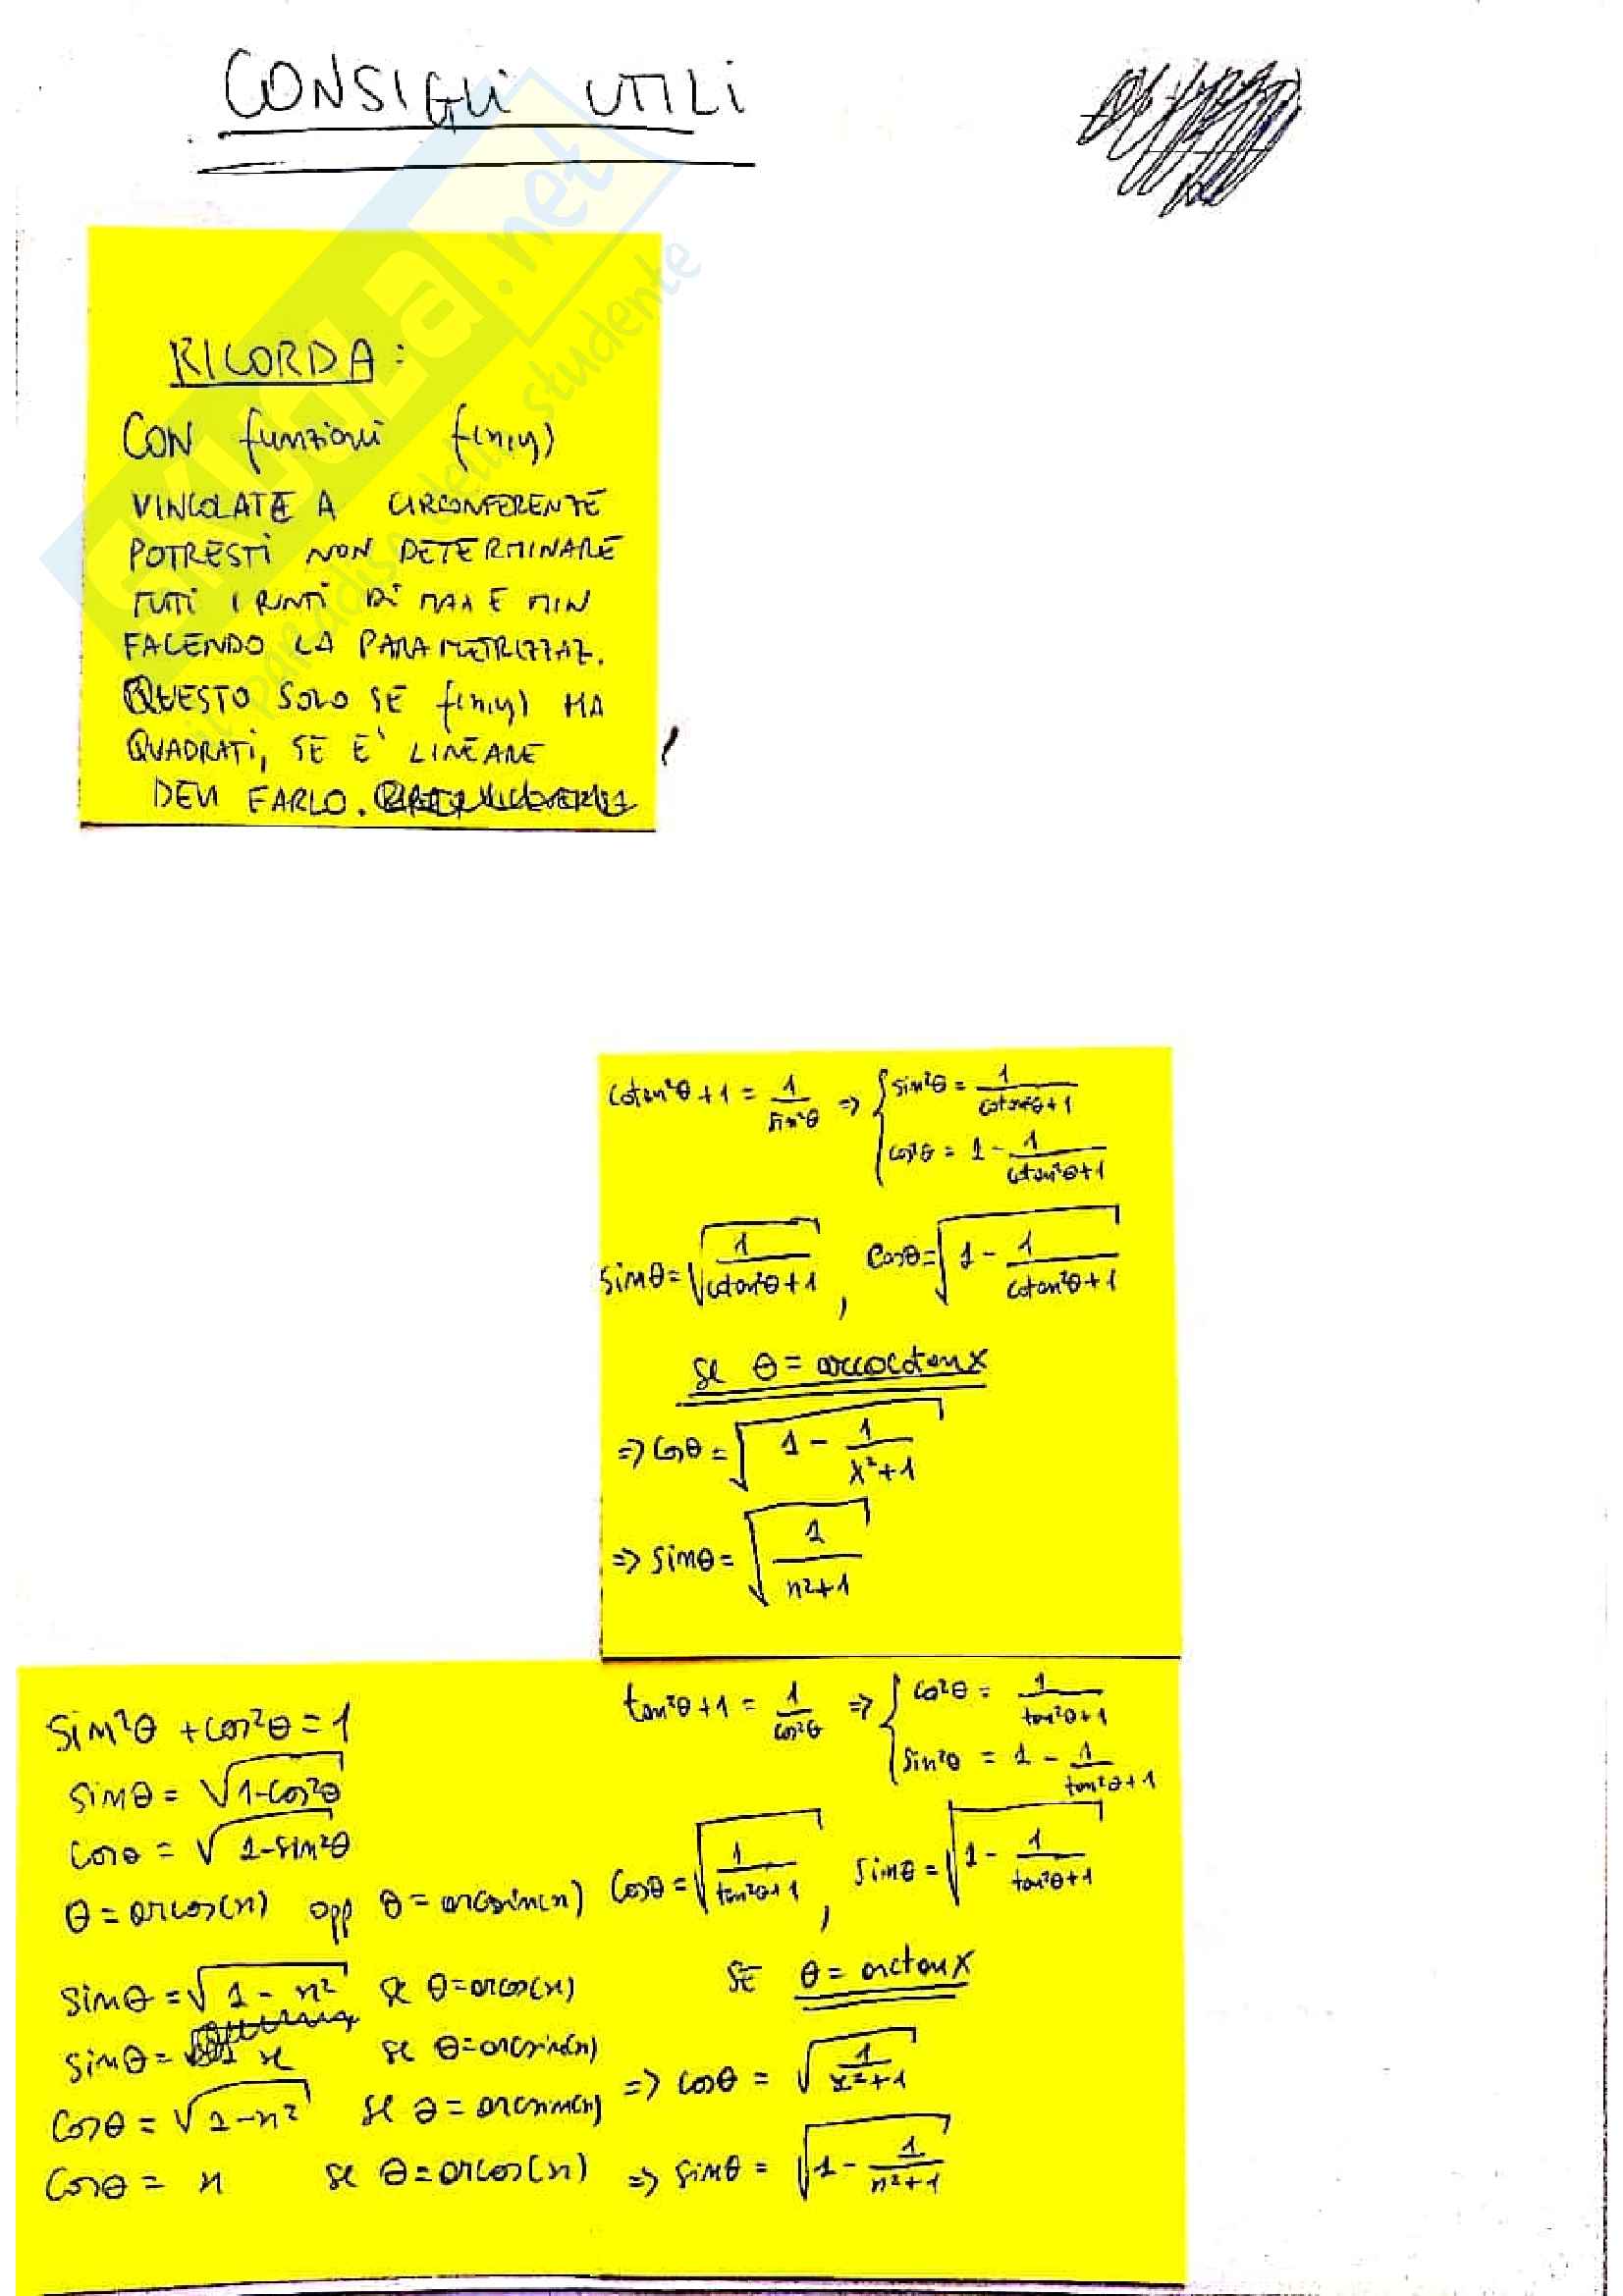 CONSIGLI UTILI
SKUOLA.net
il paradiso dello studente
RICORDA:
CON funzioni f(x,y)
VINCOLATE A CIRCONFERENZE
POTRESTI NON DETERMINARE
TUTTI I PUNTI DI MAX E MIN
FACENDO LA PARAMETRIZZAZ.
QUESTO SOLO SE f(x,y) HA
QUADRATI, SE E' LINEARE
DEVI FARLO.
cotan²θ + 1 = 1/sin²θ => { sin²θ = 1/(cotan²θ+1)
cos²θ = 1 - 1/(cotan²θ+1)
sinθ = √(1/(cotan²θ+1)) , cosθ = √(1 - 1/(cotan²θ+1))
se θ = arccotanx
=> cosθ = √(1 - 1/(x²+1))
=> sinθ = √(1/(x²+1))
sin²θ + cos²θ = 1
sinθ = √(1-cos²θ)
cosθ = √(1-sin²θ)
θ = arcos(x) opp θ = arcsin(x)
sinθ = √(1-x²) se θ = arcos(x)
sinθ = x se θ = arcsin(x)
cosθ = √(1-x²) se θ = arcsin(x)
cosθ = x se θ = arcos(x)
tan²θ + 1 = 1/cos²θ => { cos²θ = 1/(tan²θ+1)
sin²θ = 1 - 1/(tan²θ+1)
cosθ = √(1/(tan²θ+1)) , sinθ = √(1 - 1/(tan²θ+1))
SE θ = arctanx
=> cosθ = √(1/(x²+1))
=> sinθ = √(1 - 1/(x²+1))